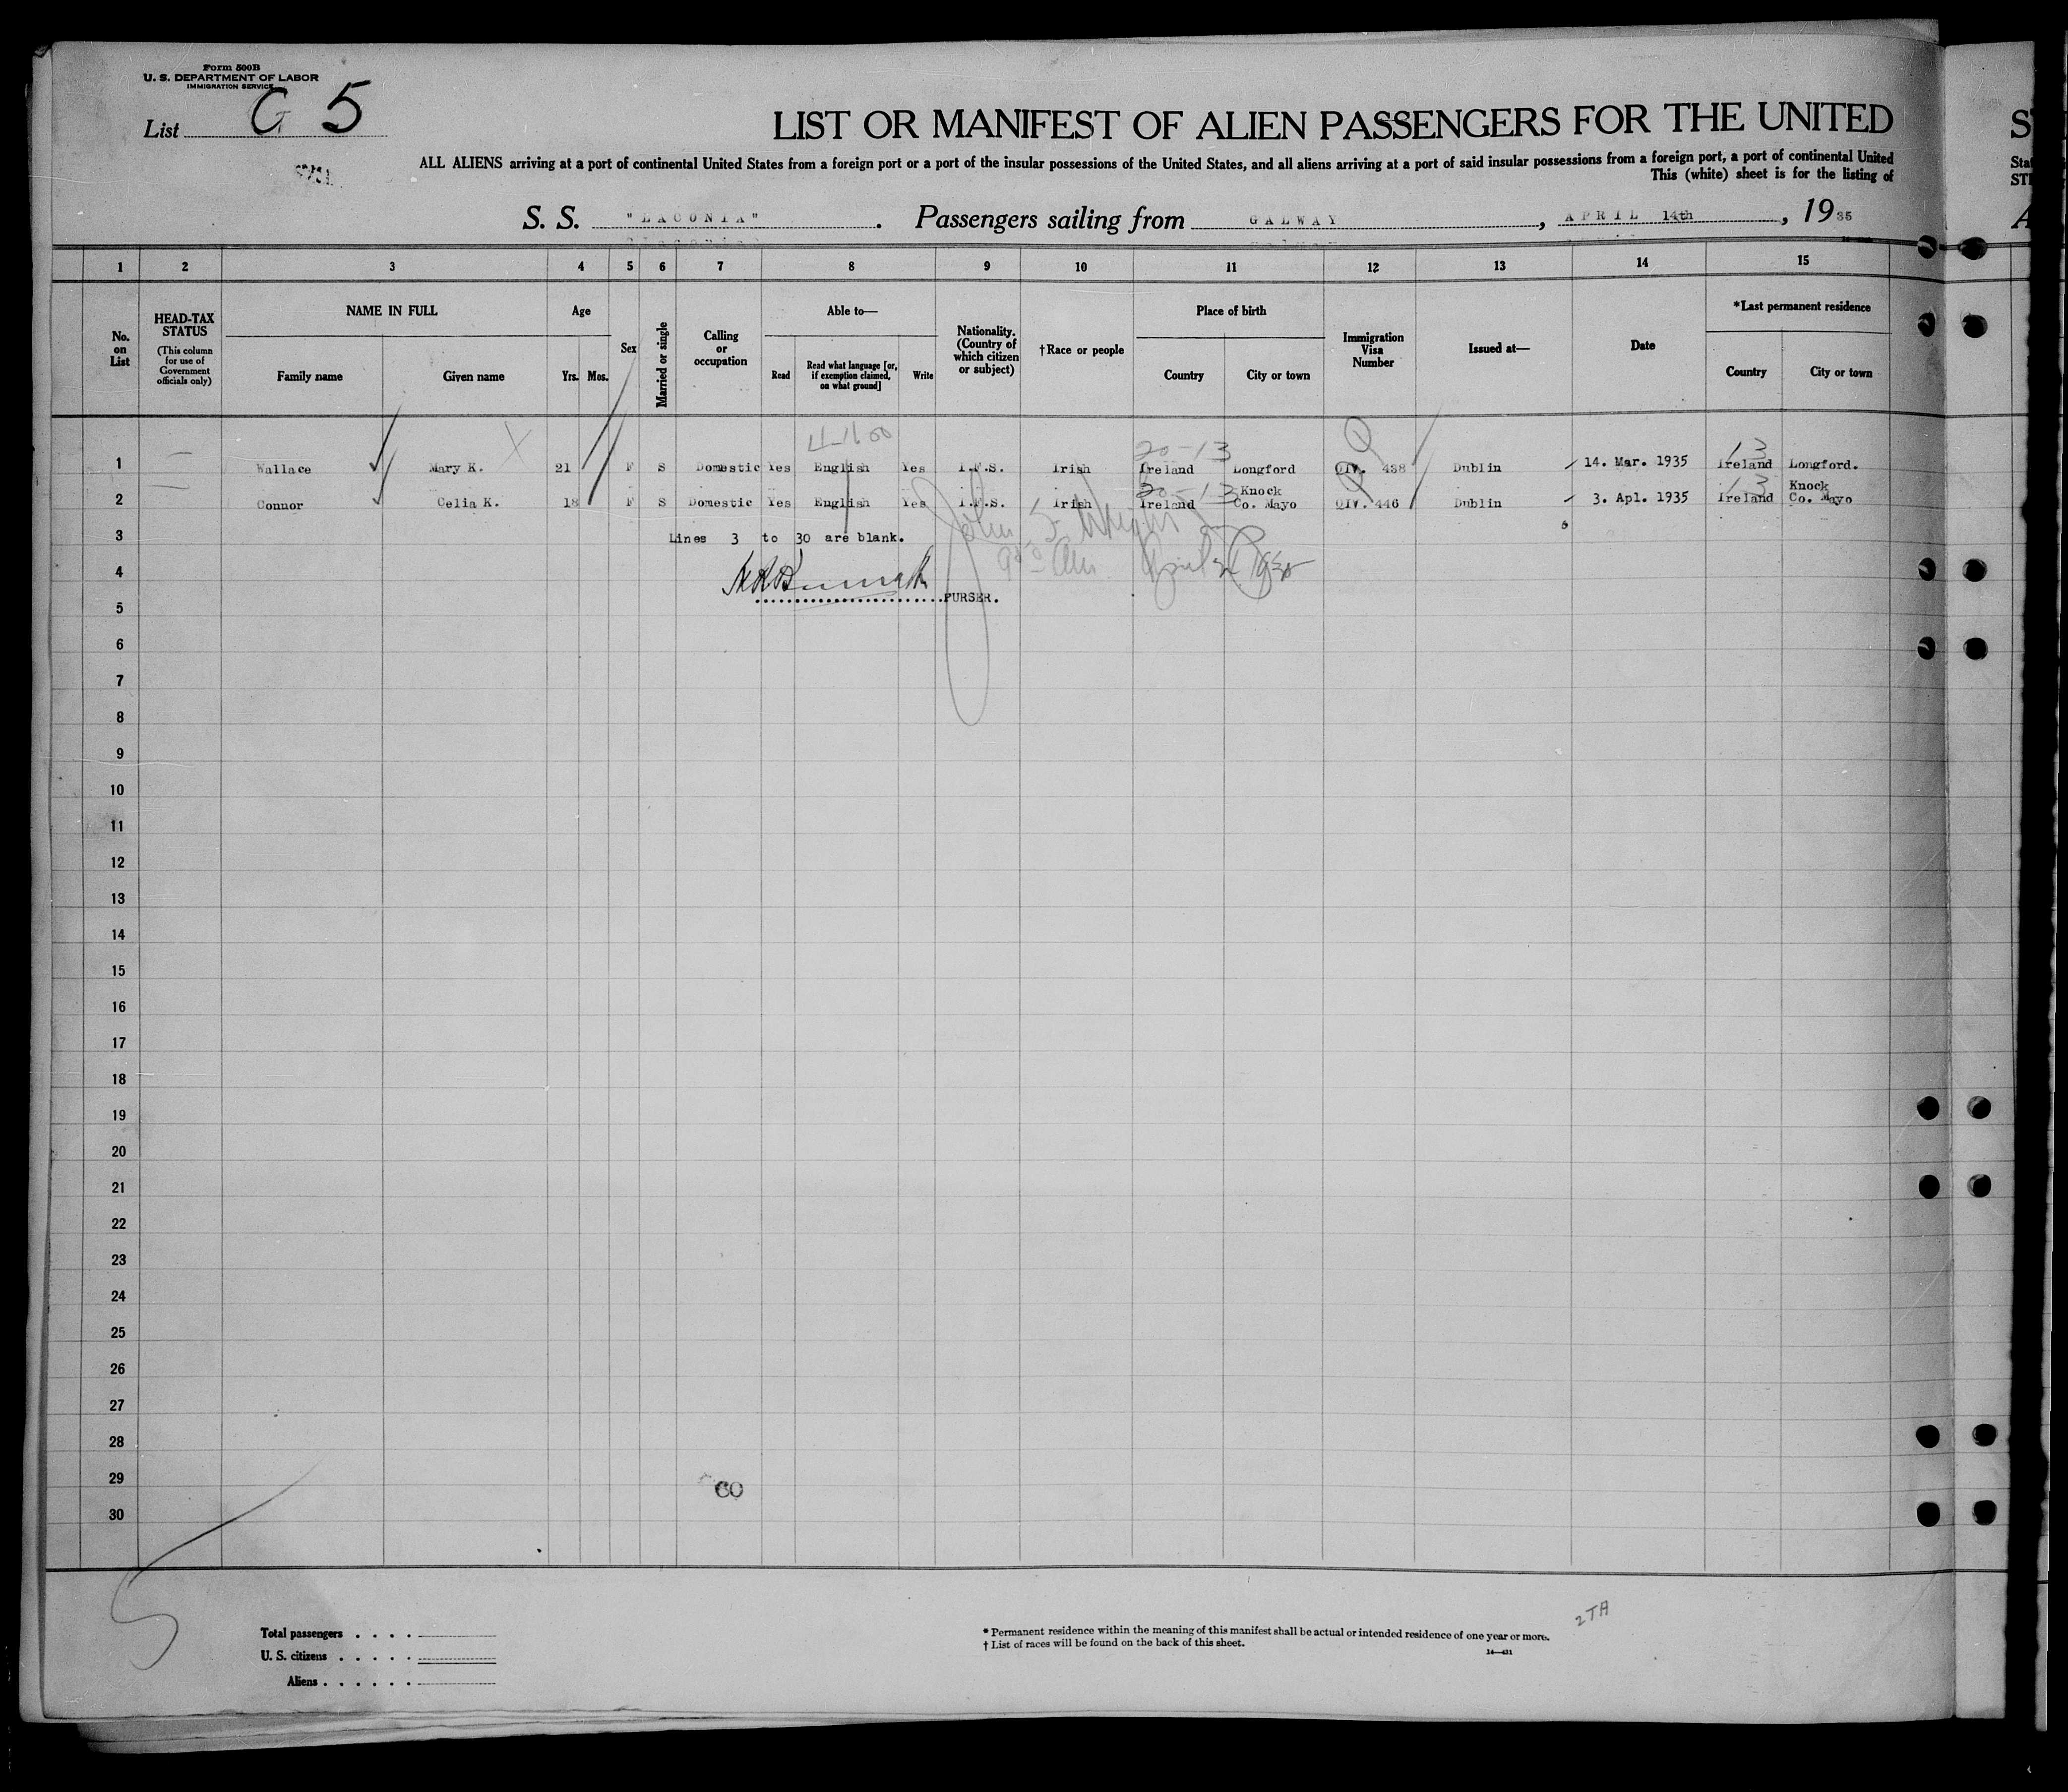 Form 500B
U. S. DEPARTMENT OF LABOR
IMMIGRATION SERVICE
List G 5
LIST OR MANIFEST OF ALIEN PASSENGERS FOR THE UNITED
ALL ALIENS arriving at a port of continental United States from a foreign port or a port of the insular possessions of the United States, and all aliens arriving at a port of said insular possessions from a foreign port, a port of continental United
This (white) sheet is for the listing of
S. S. "LACONIA". Passengers sailing from GALWAY, APRIL 14th, 1935
1 2 3 4 5 6 7 8 9 10 11 12 13 14 15
No. on List
HEAD-TAX STATUS (This column for use of Government officials only)
NAME IN FULL
Family name Given name
Age
Yrs. Mos.
Sex
Married or single
Calling or occupation
Able to—
Read Read what language [or, if exemption claimed, on what ground] Write
Nationality. (Country of which citizen or subject)
†Race or people
Place of birth
Country City or town
Immigration Visa Number
Issued at—
Date
*Last permanent residence
Country City or town
20-13 13
1 Wallace Mary K. 21 F S Domestic Yes English Yes I.F.S. Irish Ireland Longford QIV. 438 Dublin 14. Mar. 1935 Ireland Longford.
20-13 13
2 Connor Celia K. 18 F S Domestic Yes English Yes I.F.S. Irish Ireland Knock Co. Mayo QIV. 446 Dublin 3. Apl. 1935 Ireland Knock Co. Mayo
3 Lines 3 to 30 are blank.
4
5 PURSER.
6
7
8
9
10
11
12
13
14
15
16
17
18
19
20
21
22
23
24
25
26
27
28
29
30
Total passengers
U. S. citizens
Aliens
* Permanent residence within the meaning of this manifest shall be actual or intended residence of one year or more.
† List of races will be found on the back of this sheet.
14—431
2TA